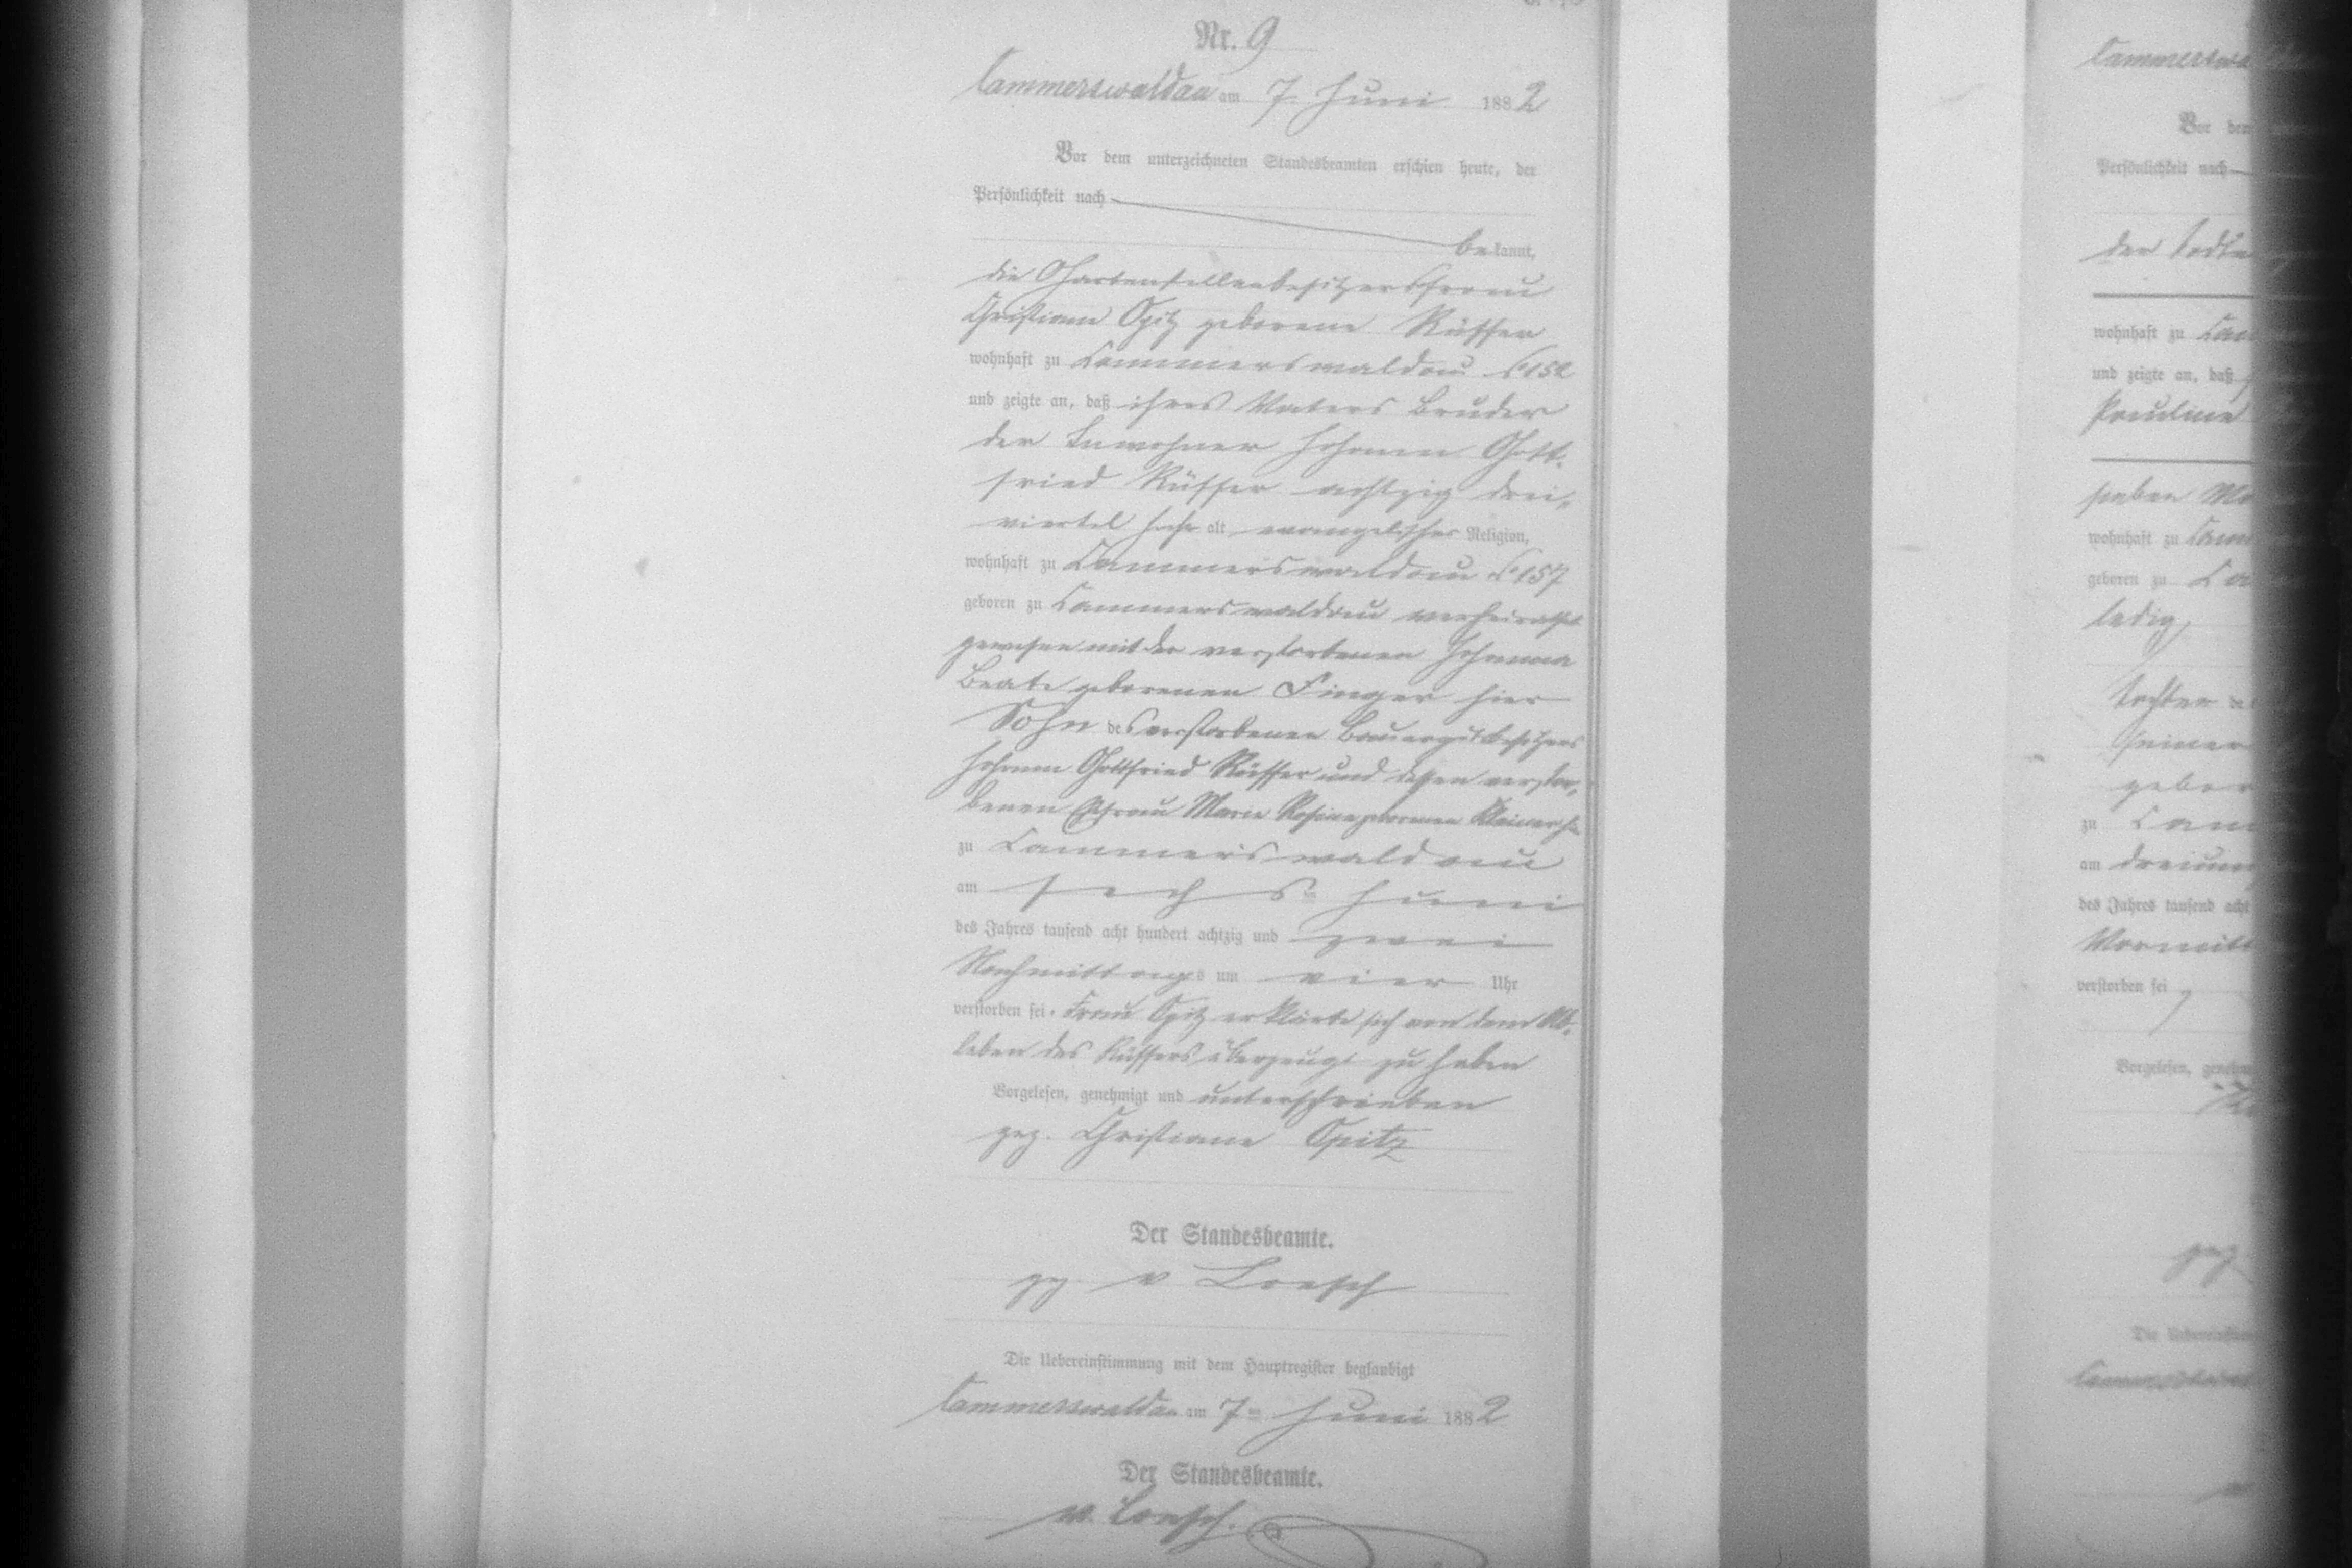 Nr. 9
Cammerswaldau am 7. Juni 1882
Vor dem unterzeichneten Standesbeamten erschien heute, der
Persönlichkeit nach
bekannt,
die Gartenstellenbesitzersfrau
Christiane Opitz geborene Rüffer
wohnhaft zu Cammerswaldau No 152
und zeigte an, daß ihres Vaters Bruder
der Inwohner Johann Gott-
fried Rüffer achtzig drei-
viertel Jahr alt, evangelischer Religion,
wohnhaft zu Cammerswaldau No 157
geboren zu Cammerswaldau verheirathet
gewesen mit der verstorbenen Johanna
Beate geborenen Finger hier
Sohn des verstorbenen Bauergutsbesitzers
Johann Gottfried Rüffer und dessen verstor-
benen Ehefrau Marie Rosine geborenen Kleiner
zu Cammerswaldau
am sechsten Juni
des Jahres tausend acht hundert achtzig und zwei
Nachmittags um vier Uhr
verstorben sei. Frau Opitz erklärte sich von dem Ab-
leben des Rüffers überzeugt zu haben
Vorgelesen, genehmigt und unterschrieben
gez. Christiane Opitz
Der Standesbeamte.
gez. v Loesch
Die Uebereinstimmung mit dem Hauptregister beglaubigt
Cammerswaldau am 7ten Juni 1882
Der Standesbeamte.
v. Loesch.
Vor dem
Persönlichkeit nach
der
wohnhaft zu
und zeigte an, daß
Pauline
sieben
wohnhaft zu
geboren zu
ledig,
Tochter
seiner
zu
am
des Jahres tausend acht
verstorben sei
Vorgelesen,
gez